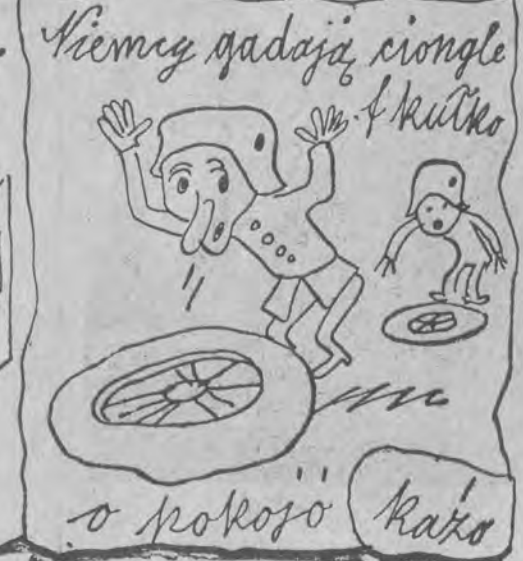 Niemcy gadają ciongle
f kułko
o pokojó
każo